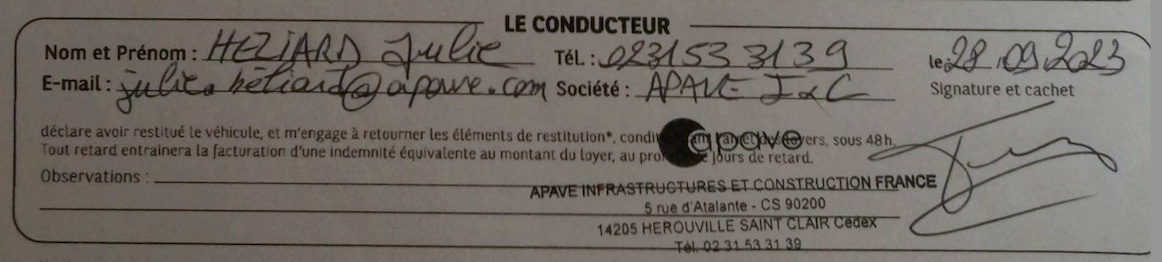 LE CONDUCTEUR
Nom et Prénom : HEZIARD Julie Tél. : 0231533139 le 28.09.2023
E-mail : julie.heliard@apave.com Société : APAVE I&C Signature et cachet
déclare avoir restitué le véhicule, et m'engage à retourner les éléments de restitution*, sous 48h.
apave
Tout retard entrainera la facturation d'une indemnité équivalente au montant du loyer, au jours de retard.
Observations :
APAVE INFRASTRUCTURES ET CONSTRUCTION FRANCE
5 rue d'Atalante - CS 90200
14205 HEROUVILLE SAINT CLAIR Cedex
Tél. 02 31 53 31 39